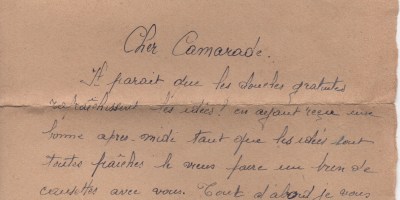 Cher Camarade.
Il parait que les douches gratuites
rafraîchissent les idées! en ayant reçu une
bonne après-midi tant que les idées sont
toutes fraîches je viens faire un brin de
causettes avec vous. Tout d'abord je vous